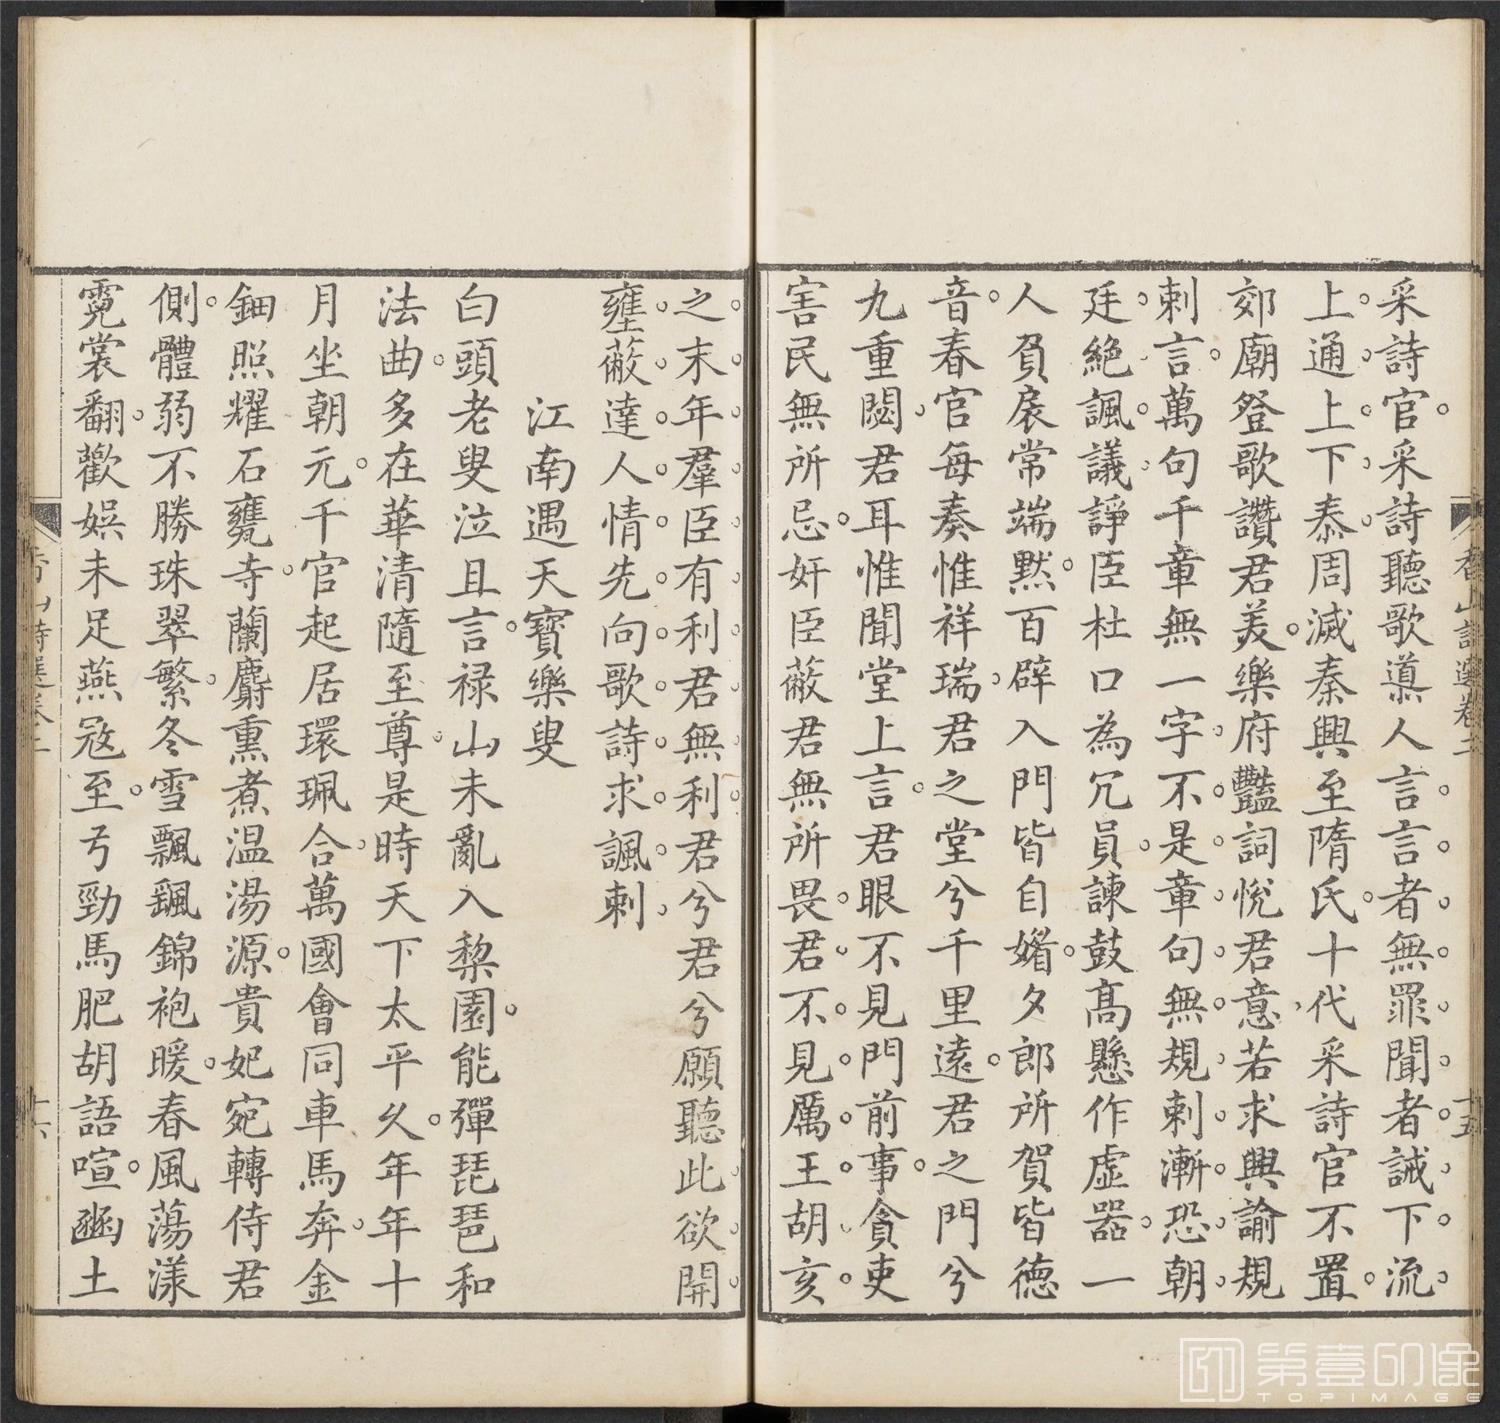 采詩官采詩聽歌導人言言者無罪聞者誡下流
上通上下泰周滅秦興至隋氏十代采詩官不置
郊廟登歌讚君美樂府豔詞悅君意若求興諭規
刺言萬句千章無一字不是章句無規刺漸恐朝
廷絕諷議諍臣杜口為冗員諫鼓高懸作虛器一
人負扆常端默百辟入門皆自媚夕郎所賀皆德
音春官每奏惟祥瑞君之堂兮千里遠君之門兮
九重閟君耳惟聞堂上言君眼不見門前事貪吏
害民無所忌奸臣蔽君無所畏君不見厲王胡亥
香山詩選卷二
十五
之末年羣臣有利君無利君兮君兮願聽此欲開
壅蔽達人情先向歌詩求諷刺
江南遇天寶樂叟
白頭老叟泣且言祿山未亂入棃園能彈琵琶和
法曲多在華清隨至尊是時天下太平久年年十
月坐朝元千官起居環珮合萬國會同車馬奔金
鈿照耀石甕寺蘭麝熏煮温湯源貴妃宛轉侍君
側體弱不勝珠翠繁冬雪飄颻錦袍暖春風蕩漾
霓裳翻歡娛未足燕寇至弓勁馬肥胡語喧豳土
香山詩選卷二
十六
第壹印像
TOPIMAGE